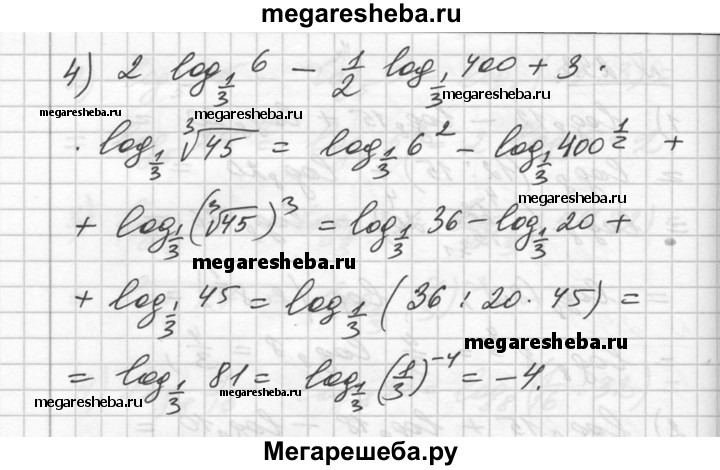 megaresheba.ru
4) 2 log_{1/3} 6 - 1/2 log_{1/3} 400 + 3 ·
megaresheba.ru megaresheba.ru
· log_{1/3} ∛45 = log_{1/3} 6^2 - log_{1/3} 400^{1/2} +
megaresheba.ru
+ log_{1/3} (∛45)^3 = log_{1/3} 36 - log_{1/3} 20 +
megaresheba.ru
+ log_{1/3} 45 = log_{1/3} (36 : 20 · 45) =
megaresheba.ru
= log_{1/3} 81 = log_{1/3} (1/3)^{-4} = -4.
megaresheba.ru
Мегарешеба.ру